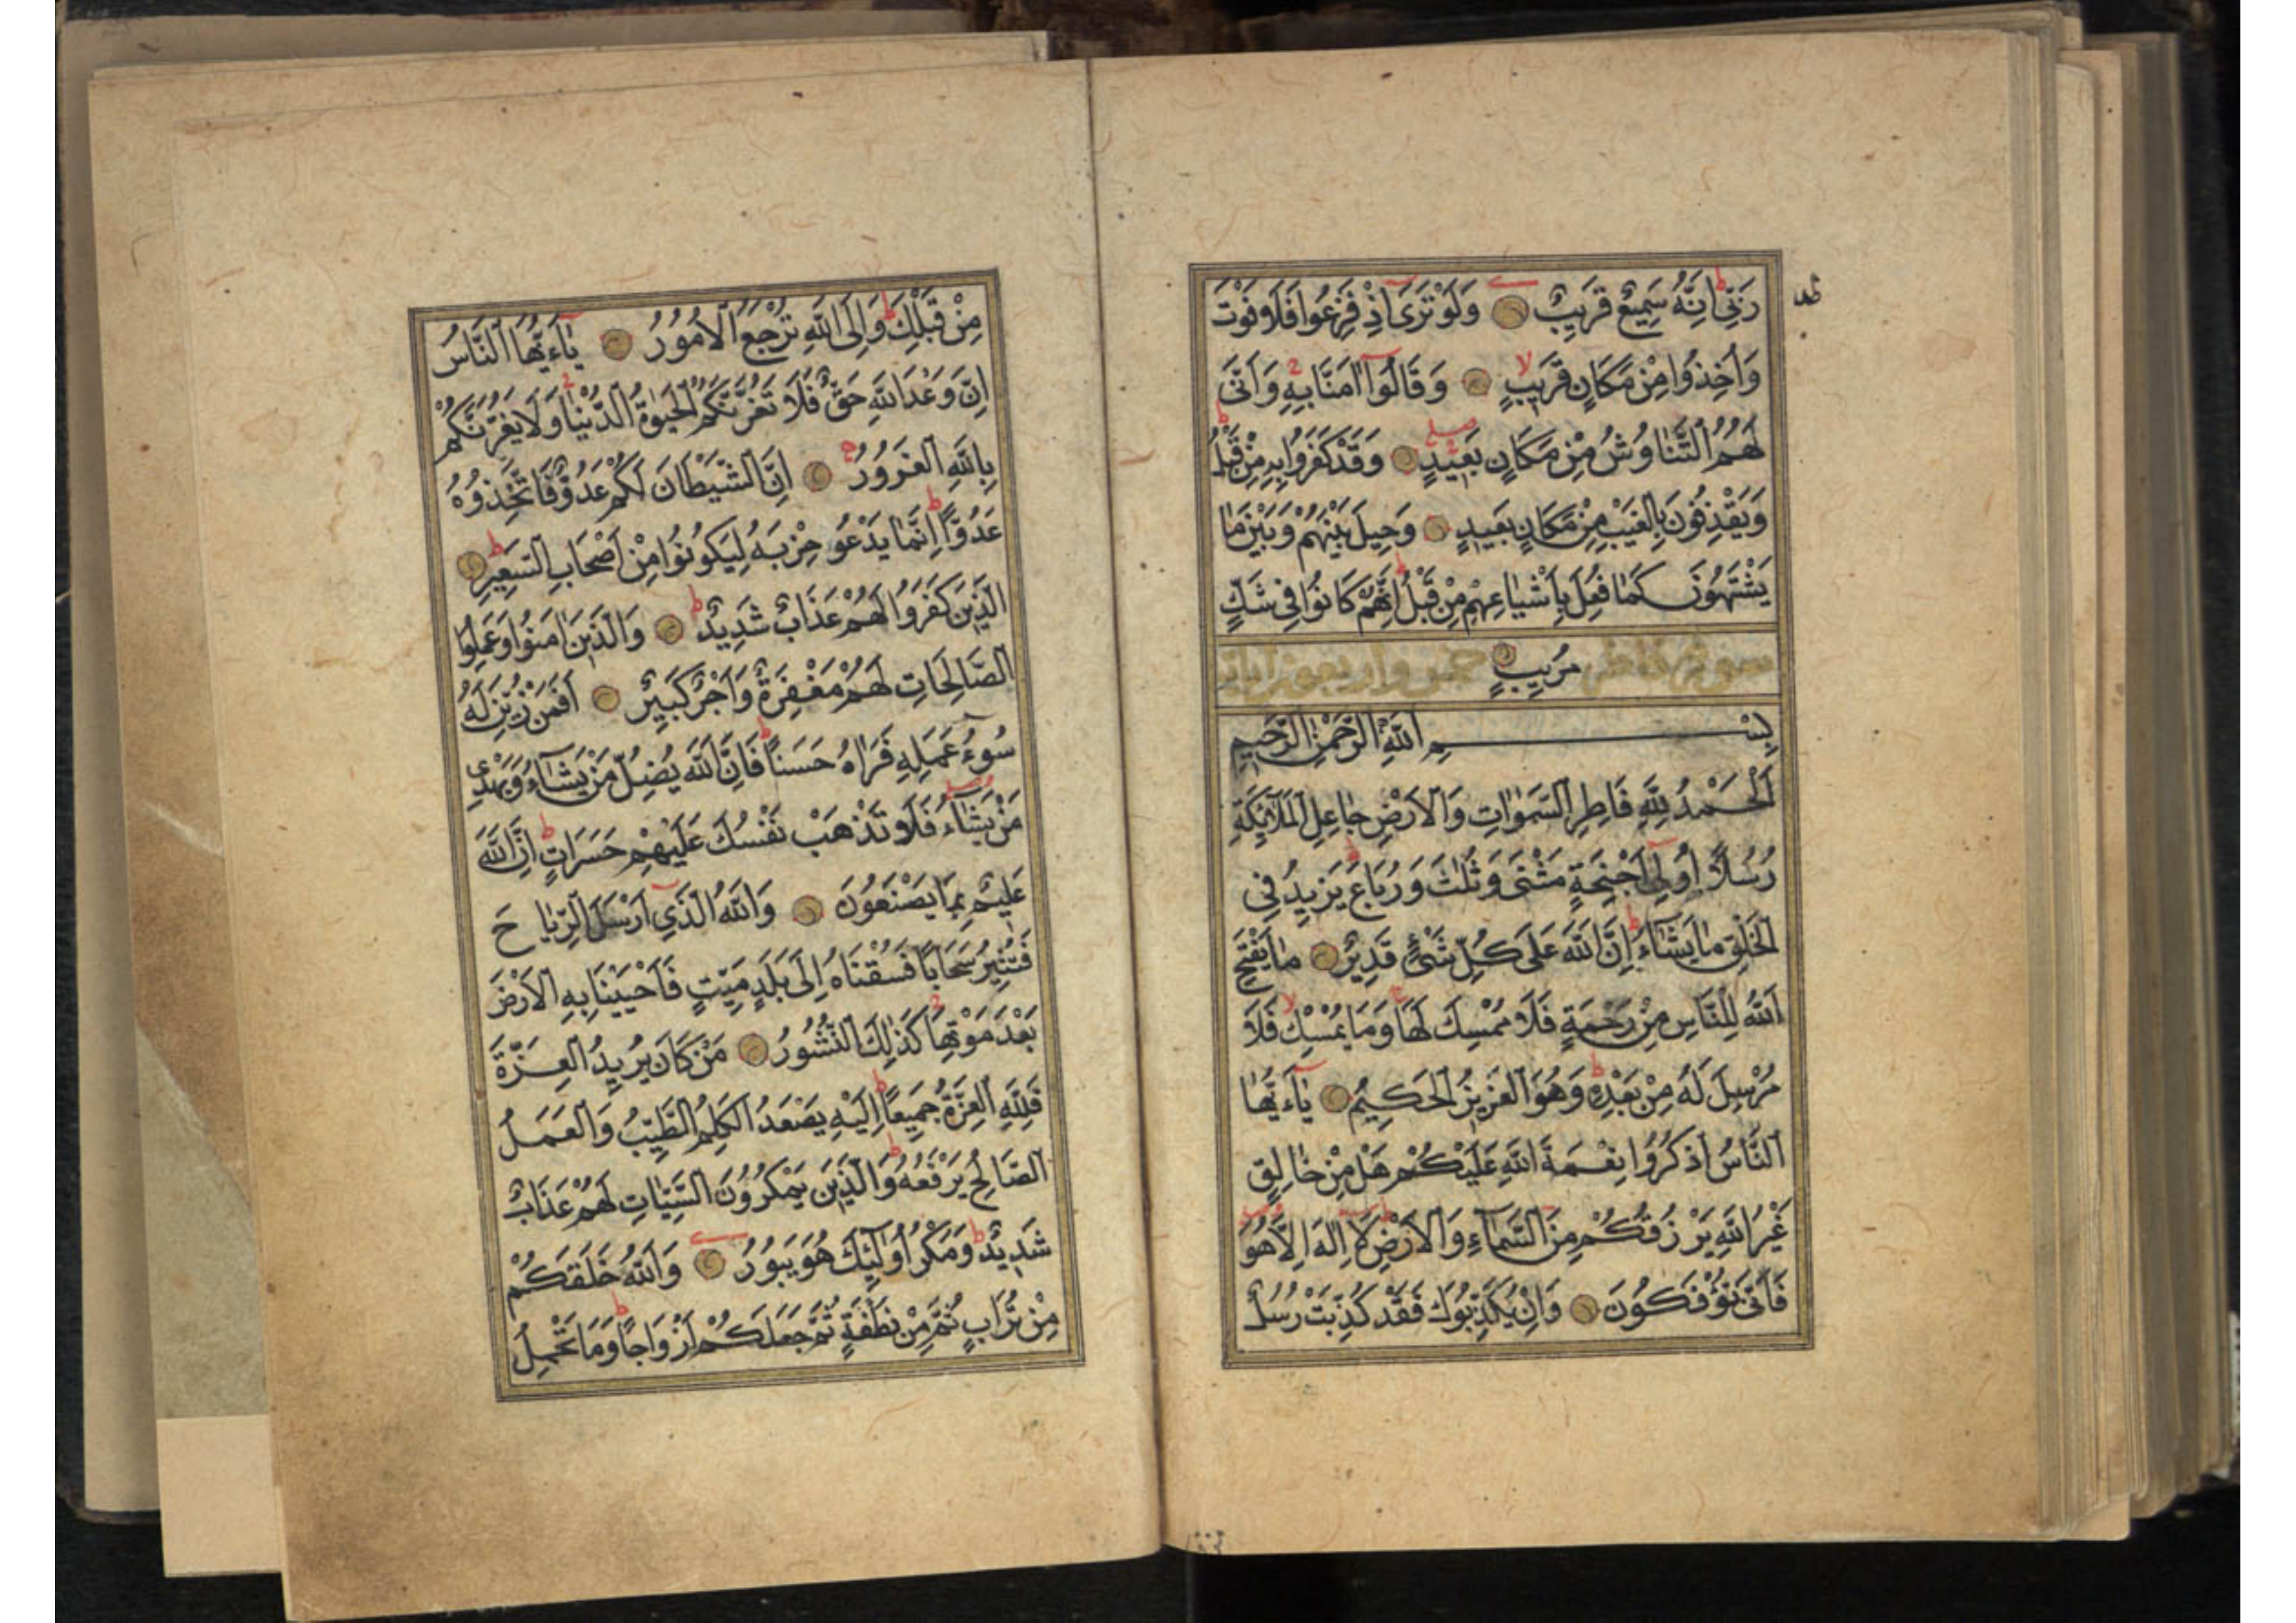 رَبّ۪ي اِنَّهُ سَم۪يعٌ قَر۪يبٌ وَلَوْ تَرٰى اِذْ فَزِعُوا فَلَا فَوْتَ
وَاُخِذُوا مِنْ مَكَانٍ قَر۪يبٍ وَقَالُوا اٰمَنَّا بِهِ وَاَنّٰى
لَهُمُ التَّنَاوُشُ مِنْ مَكَانٍ بَع۪يدٍ وَقَدْ كَفَرُوا بِهِ مِنْ قَبْلُ
وَيَقْذِفُونَ بِالْغَيْبِ مِنْ مَكَانٍ بَع۪يدٍ وَح۪يلَ بَيْنَهُمْ وَبَيْنَ مَا
يَشْتَهُونَ كَمَا فُعِلَ بِاَشْيَاعِهِمْ مِنْ قَبْلُ اِنَّهُمْ كَانُوا ف۪ي شَكٍّ
سورة فاطر مُر۪يبٍ خمس واربعون اياته
بِسْمِ اللّٰهِ الرَّحْمٰنِ الرَّح۪يمِ
اَلْحَمْدُ لِلّٰهِ فَاطِرِ السَّمٰوَاتِ وَالْاَرْضِ جَاعِلِ الْمَلٰٓئِكَةِ
رُسُلًا اُول۪ٓي اَجْنِحَةٍ مَثْنٰى وَثُلٰثَ وَرُبَاعَ يَز۪يدُ فِي
الْخَلْقِ مَا يَشَٓاءُ اِنَّ اللّٰهَ عَلٰى كُلِّ شَيْءٍ قَد۪يرٌ مَا يَفْتَحِ
اللّٰهُ لِلنَّاسِ مِنْ رَحْمَةٍ فَلَا مُمْسِكَ لَهَا وَمَا يُمْسِكْ فَلَا
مُرْسِلَ لَهُ مِنْ بَعْدِه۪ وَهُوَ الْعَز۪يزُ الْحَك۪يمُ يَٓا ءَيُّهَا
النَّاسُ اذْكُرُوا نِعْمَةَ اللّٰهِ عَلَيْكُمْ هَلْ مِنْ خَالِقٍ
غَيْرُ اللّٰهِ يَرْزُقُكُمْ مِنَ السَّمَٓاءِ وَالْاَرْضِ لَٓا اِلٰهَ اِلَّا هُوَ
فَاَنّٰى تُؤْفَكُونَ وَاِنْ يُكَذِّبُوكَ فَقَدْ كُذِّبَتْ رُسُلٌ
مِنْ قَبْلِكَ وَاِلَى اللّٰهِ تُرْجَعُ الْاُمُورُ يَٓا ءَيُّهَا النَّاسُ
اِنَّ وَعْدَ اللّٰهِ حَقٌّ فَلَا تَغُرَّنَّكُمُ الْحَيٰوةُ الدُّنْيَا وَلَا يَغُرَّنَّكُمْ
بِاللّٰهِ الْغَرُورُ اِنَّ الشَّيْطَانَ لَكُمْ عَدُوٌّ فَاتَّخِذُوهُ
عَدُوًّا اِنَّمَا يَدْعُو حِزْبَهُ لِيَكُونُوا مِنْ اَصْحَابِ السَّع۪يرِ
اَلَّذ۪ينَ كَفَرُوا لَهُمْ عَذَابٌ شَد۪يدٌ وَالَّذ۪ينَ اٰمَنُوا وَعَمِلُوا
الصَّالِحَاتِ لَهُمْ مَغْفِرَةٌ وَاَجْرٌ كَب۪يرٌ اَفَمَنْ زُيِّنَ لَهُ
سُوءُ عَمَلِه۪ فَرَاٰهُ حَسَنًا فَاِنَّ اللّٰهَ يُضِلُّ مَنْ يَشَٓاءُ وَيَهْد۪ي
مَنْ يَشَٓاءُ فَلَا تَذْهَبْ نَفْسُكَ عَلَيْهِمْ حَسَرَاتٍ اِنَّ اللّٰهَ
عَل۪يمٌ بِمَا يَصْنَعُونَ وَاللّٰهُ الَّذ۪ٓي اَرْسَلَ الرِّيَاحَ
فَتُث۪يرُ سَحَابًا فَسُقْنَاهُ اِلٰى بَلَدٍ مَيِّتٍ فَاَحْيَيْنَا بِهِ الْاَرْضَ
بَعْدَ مَوْتِهَا كَذٰلِكَ النُّشُورُ مَنْ كَانَ يُر۪يدُ الْعِزَّةَ
فَلِلّٰهِ الْعِزَّةُ جَم۪يعًا اِلَيْهِ يَصْعَدُ الْكَلِمُ الطَّيِّبُ وَالْعَمَلُ
الصَّالِحُ يَرْفَعُهُ وَالَّذ۪ينَ يَمْكُرُونَ السَّيِّاٰتِ لَهُمْ عَذَابٌ
شَد۪يدٌ وَمَكْرُ اُولٰٓئِكَ هُوَ يَبُورُ وَاللّٰهُ خَلَقَكُمْ
مِنْ تُرَابٍ ثُمَّ مِنْ نُطْفَةٍ ثُمَّ جَعَلَكُمْ اَزْوَاجًا وَمَا تَحْمِلُ